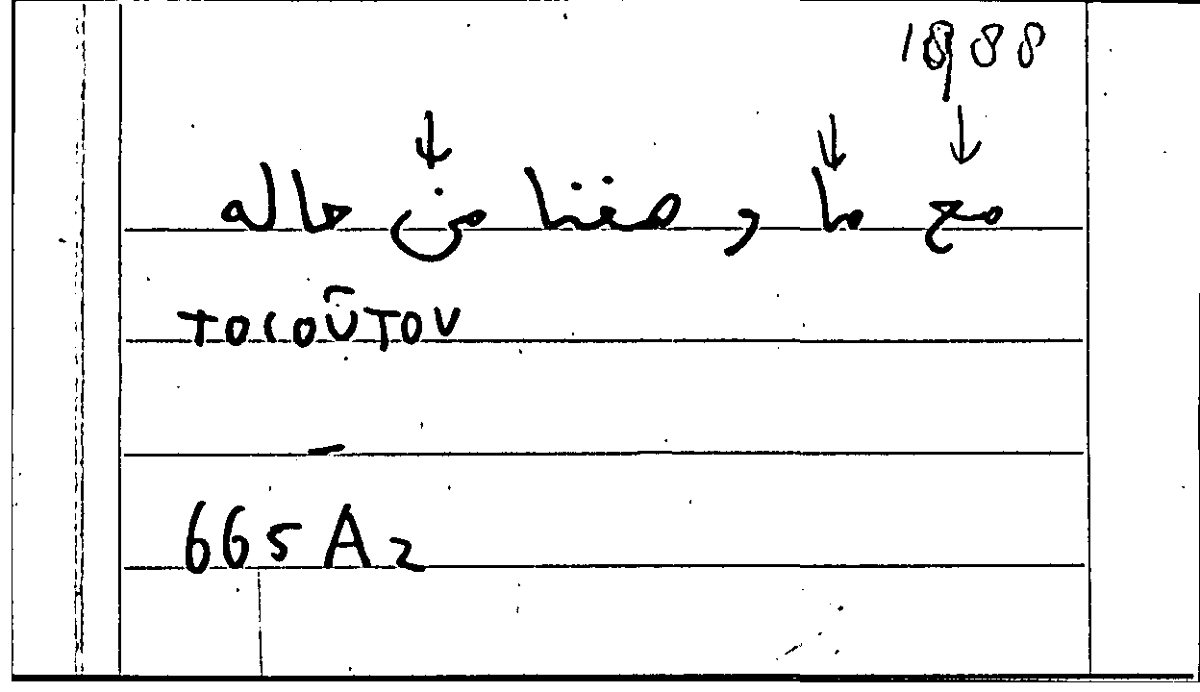 مع ما وصفنا من حاله
τοϲοῦτον
–
665A2